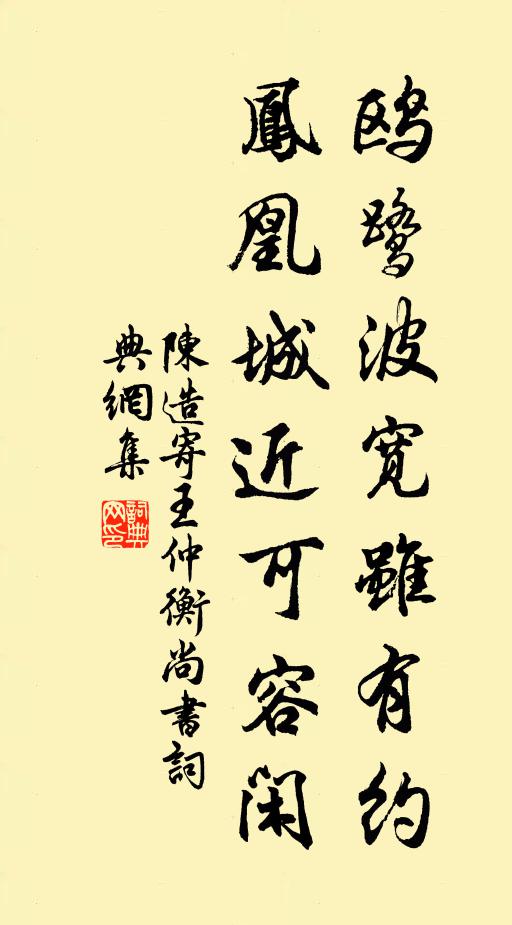 鸥鹭波宽雖有約
鳳凰城近可容閑
陳造寄王仲衡尚書詞
典網集
詞典网印